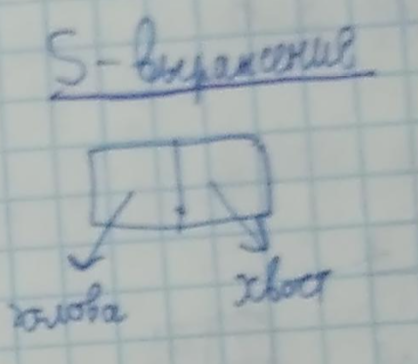 S-выражение
голова
хвост